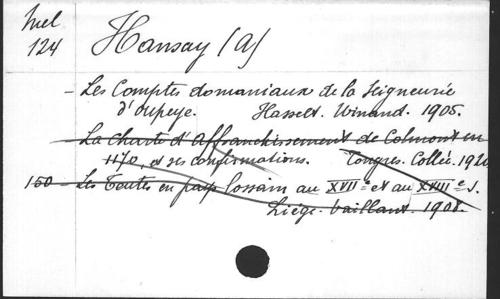 Mel
124
Hansay (A)
- Les Comptes domaniaux de la seigneurie
d'oupeye. Hasselt. Winand. 1905.
- La Charte d'Affranchissement de Colmont en
1170, et ses confirmations. Tongres. Collée. 192
150 - Les en pays lossain au XVIIe et au XVIIIe s.
Liége. Vaillant. 1908.